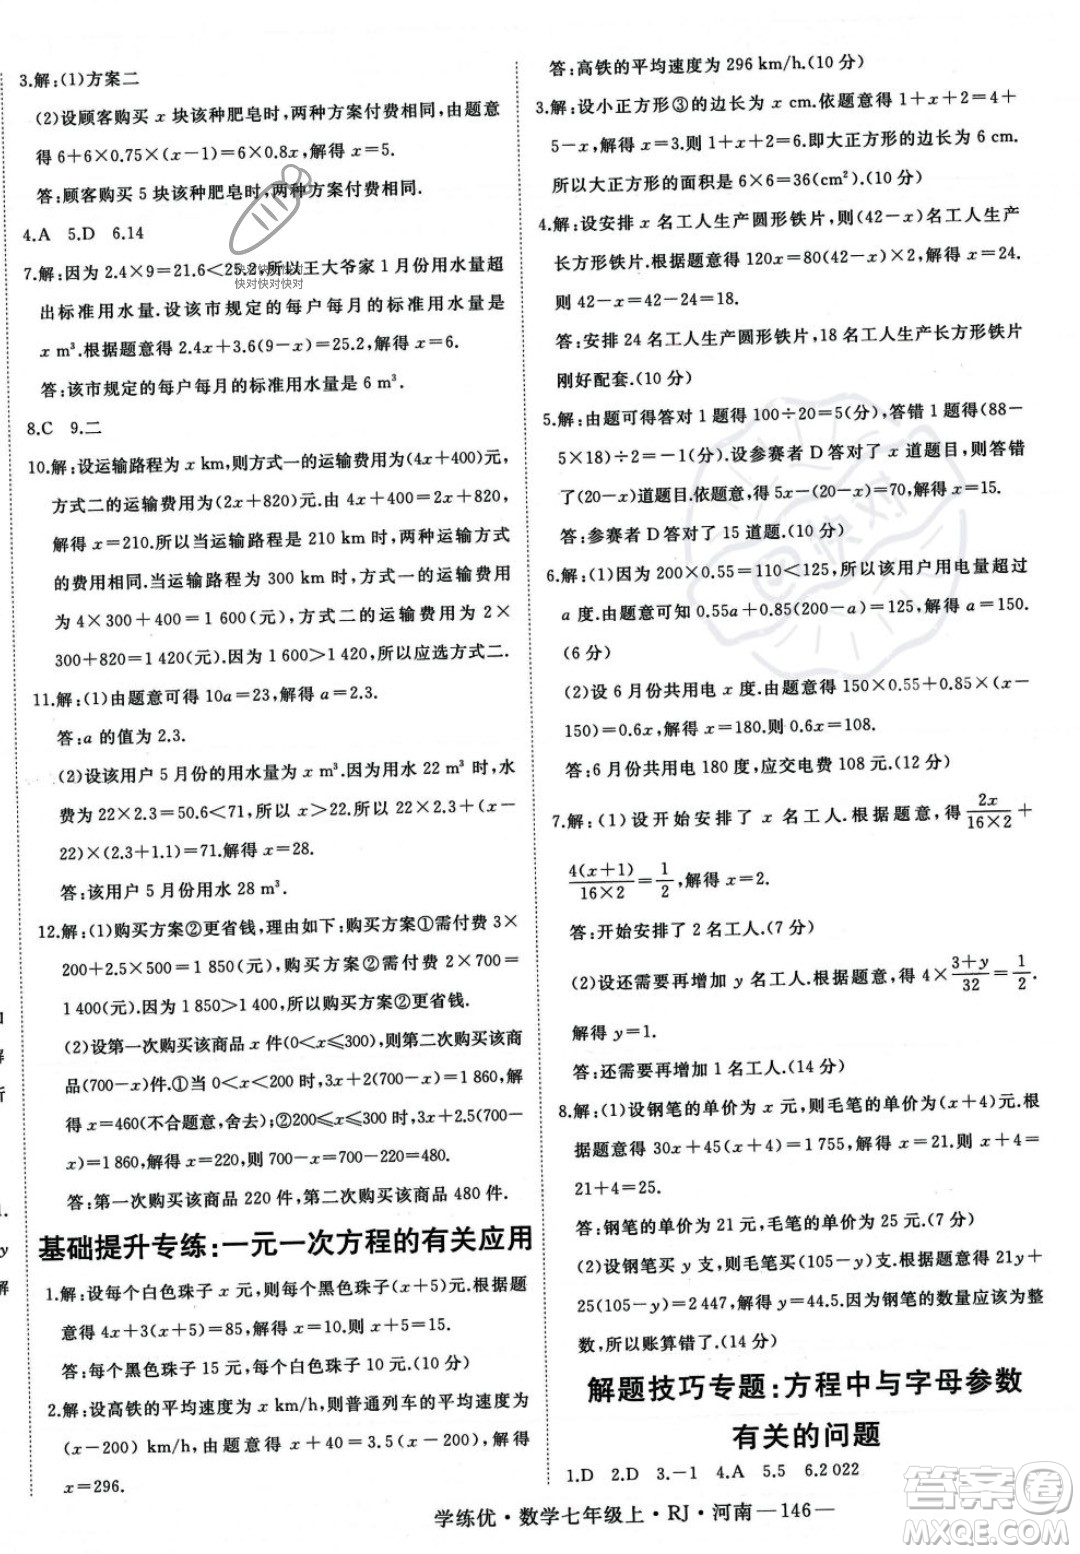 3.解:(1)方案二
(2)设顾客购买 x 块该种肥皂时,两种方案付费相同,由题意
得 6+6×0.75×(x-1)=6×0.8x,解得 x=5.
答:顾客购买 5 块该种肥皂时,两种方案付费相同.
4.A 5.D 6.14
7.解:因为 2.4×9=21.6<25.2,所以王大爷家 1 月份用水量超
出标准用水量.设该市规定的每户每月的标准用水量为
x m³.根据题意得 2.4x+3.6(9-x)=25.2,解得 x=6.
答:该市规定的每户每月的标准用水量是 6 m³.
8.C 9.二
10.解:设运输路程为 x km,则方式一的运输费用为(4x+400)元,
方式二的运输费用为(2x+820)元.由题意得 4x+400=2x+820,
解得 x=210.所以当运输路程是 210 km 时,两种运输方式
的费用相同.当运输路程为 300 km 时,方式一的运输费用
为 4×300+400=1 600(元),方式二的运输费用为 2×
300+820=1 420(元).因为 1 600>1 420,所以应选方式二.
11.解:(1)由题意可得 10a=23,解得 a=2.3.
答:a 的值为 2.3.
(2)设该用户 5 月份的用水量为 x m³.因为用水 22 m³时,水
费为 22×2.3=50.6<71,所以 x>22.所以 22×2.3+(x-
22)×(2.3+1.1)=71.解得 x=28.
答:该用户 5 月份用水 28 m³.
12.解:(1)购买方案②更省钱,理由如下:购买方案①需付费 3×
200+2.5×500=1 850(元),购买方案②需付费 2×700=
1 400(元).因为 1 850>1 400,所以购买方案②更省钱.
(2)设第一次购买该商品 x 件(0<x≤300),则第二次购买该商
品(700-x)件.①当 0<x<200 时,3x+2(700-x)=1 860,解
得 x=460(不合题意,舍去);②200≤x≤300 时,3x+2.5(700-
x)=1 860,解得 x=220,则 700-x=700-220=480.
答:第一次购买该商品 220 件,第二次购买该商品 480 件.
基础提升专练:一元一次方程的有关应用
1.解:设每个白色珠子 x 元,则每个黑色珠子(x+5)元.根据题
意得 4x+3(x+5)=85,解得 x=10.所以 x+5=15.
答:每个黑色珠子 15 元,每个白色珠子 10 元.(10 分)
2.解:设高铁的平均速度为 x km/h,则普通列车的平均速度为
(x-200) km/h,由题意得 x+40=3.5(x-200),解得
x=296.
答:高铁的平均速度为 296 km/h.(10 分)
3.解:设小正方形③的边长为 x cm.依题意得 1+x+2=4+
5-x,解得 x=3.所以 1+x+2=6.即大正方形的边长为 6 cm.
所以大正方形的面积是 6×6=36(cm²).(10 分)
4.解:设安排 x 名工人生产圆形铁片,则(42-x)名工人生产
长方形铁片.根据题意得 120x=80(42-x)×2,解得 x=24.
则 42-x=42-24=18.
答:安排 24 名工人生产圆形铁片,18 名工人生产长方形铁片
刚好配套.(10 分)
5.解:由题可得答对 1 题得 100÷20=5(分),答错 1 题得(88-
5×18)÷2=-1(分).设参赛者 D 答对了 x 道题,则答错
了(20-x)道题目.依题意,得 5x-(20-x)=70,解得 x=15.
答:参赛者 D 答对了 15 道题.(10 分)
6.解:(1)因为 200×0.55=110<125,所以该用户用电量超过
a 度.由题意可知 0.55a+0.85(200-a)=125,解得 a=150.
(6 分)
(2)设 6 月份共用电 x 度.由题意得 150×0.55+0.85×(x-
150)=0.6x,解得 x=180.则 0.6x=108.
答:6 月份共用电 180 度,应交电费 108 元.(12 分)
7.解:(1)设开始安排了 x 名工人.根据题意,得 2x/(16×2)+
4(x+1)/(16×2)=1/2,解得 x=2.
答:开始安排了 2 名工人.(7 分)
(2)设还需要再增加 y 名工人.根据题意,得 4×(3+y)/32=1/2.
解得 y=1.
答:还需要再增加 1 名工人.(14 分)
8.解:(1)设钢笔的单价为 x 元,则毛笔的单价为(x+4)元.根
据题意得 30x+45(x+4)=1 755,解得 x=21.则 x+4=
21+4=25.
答:钢笔的单价为 21 元,毛笔的单价为 25 元.(7 分)
(2)设钢笔买 y 支,则毛笔买(105-y)支.根据题意得 21y+
25(105-y)=2 447,解得 y=44.5.因为钢笔的数量应该为整
数,所以账算错了.(14 分)
解题技巧专题:方程中与字母参数
有关的问题
1.D 2.D 3.-1 4.A 5.5 6.2 022
学练优·数学七年级上·RJ·河南—146—
快对快对快对
快对快对快对
答案圈
MXQE.COM